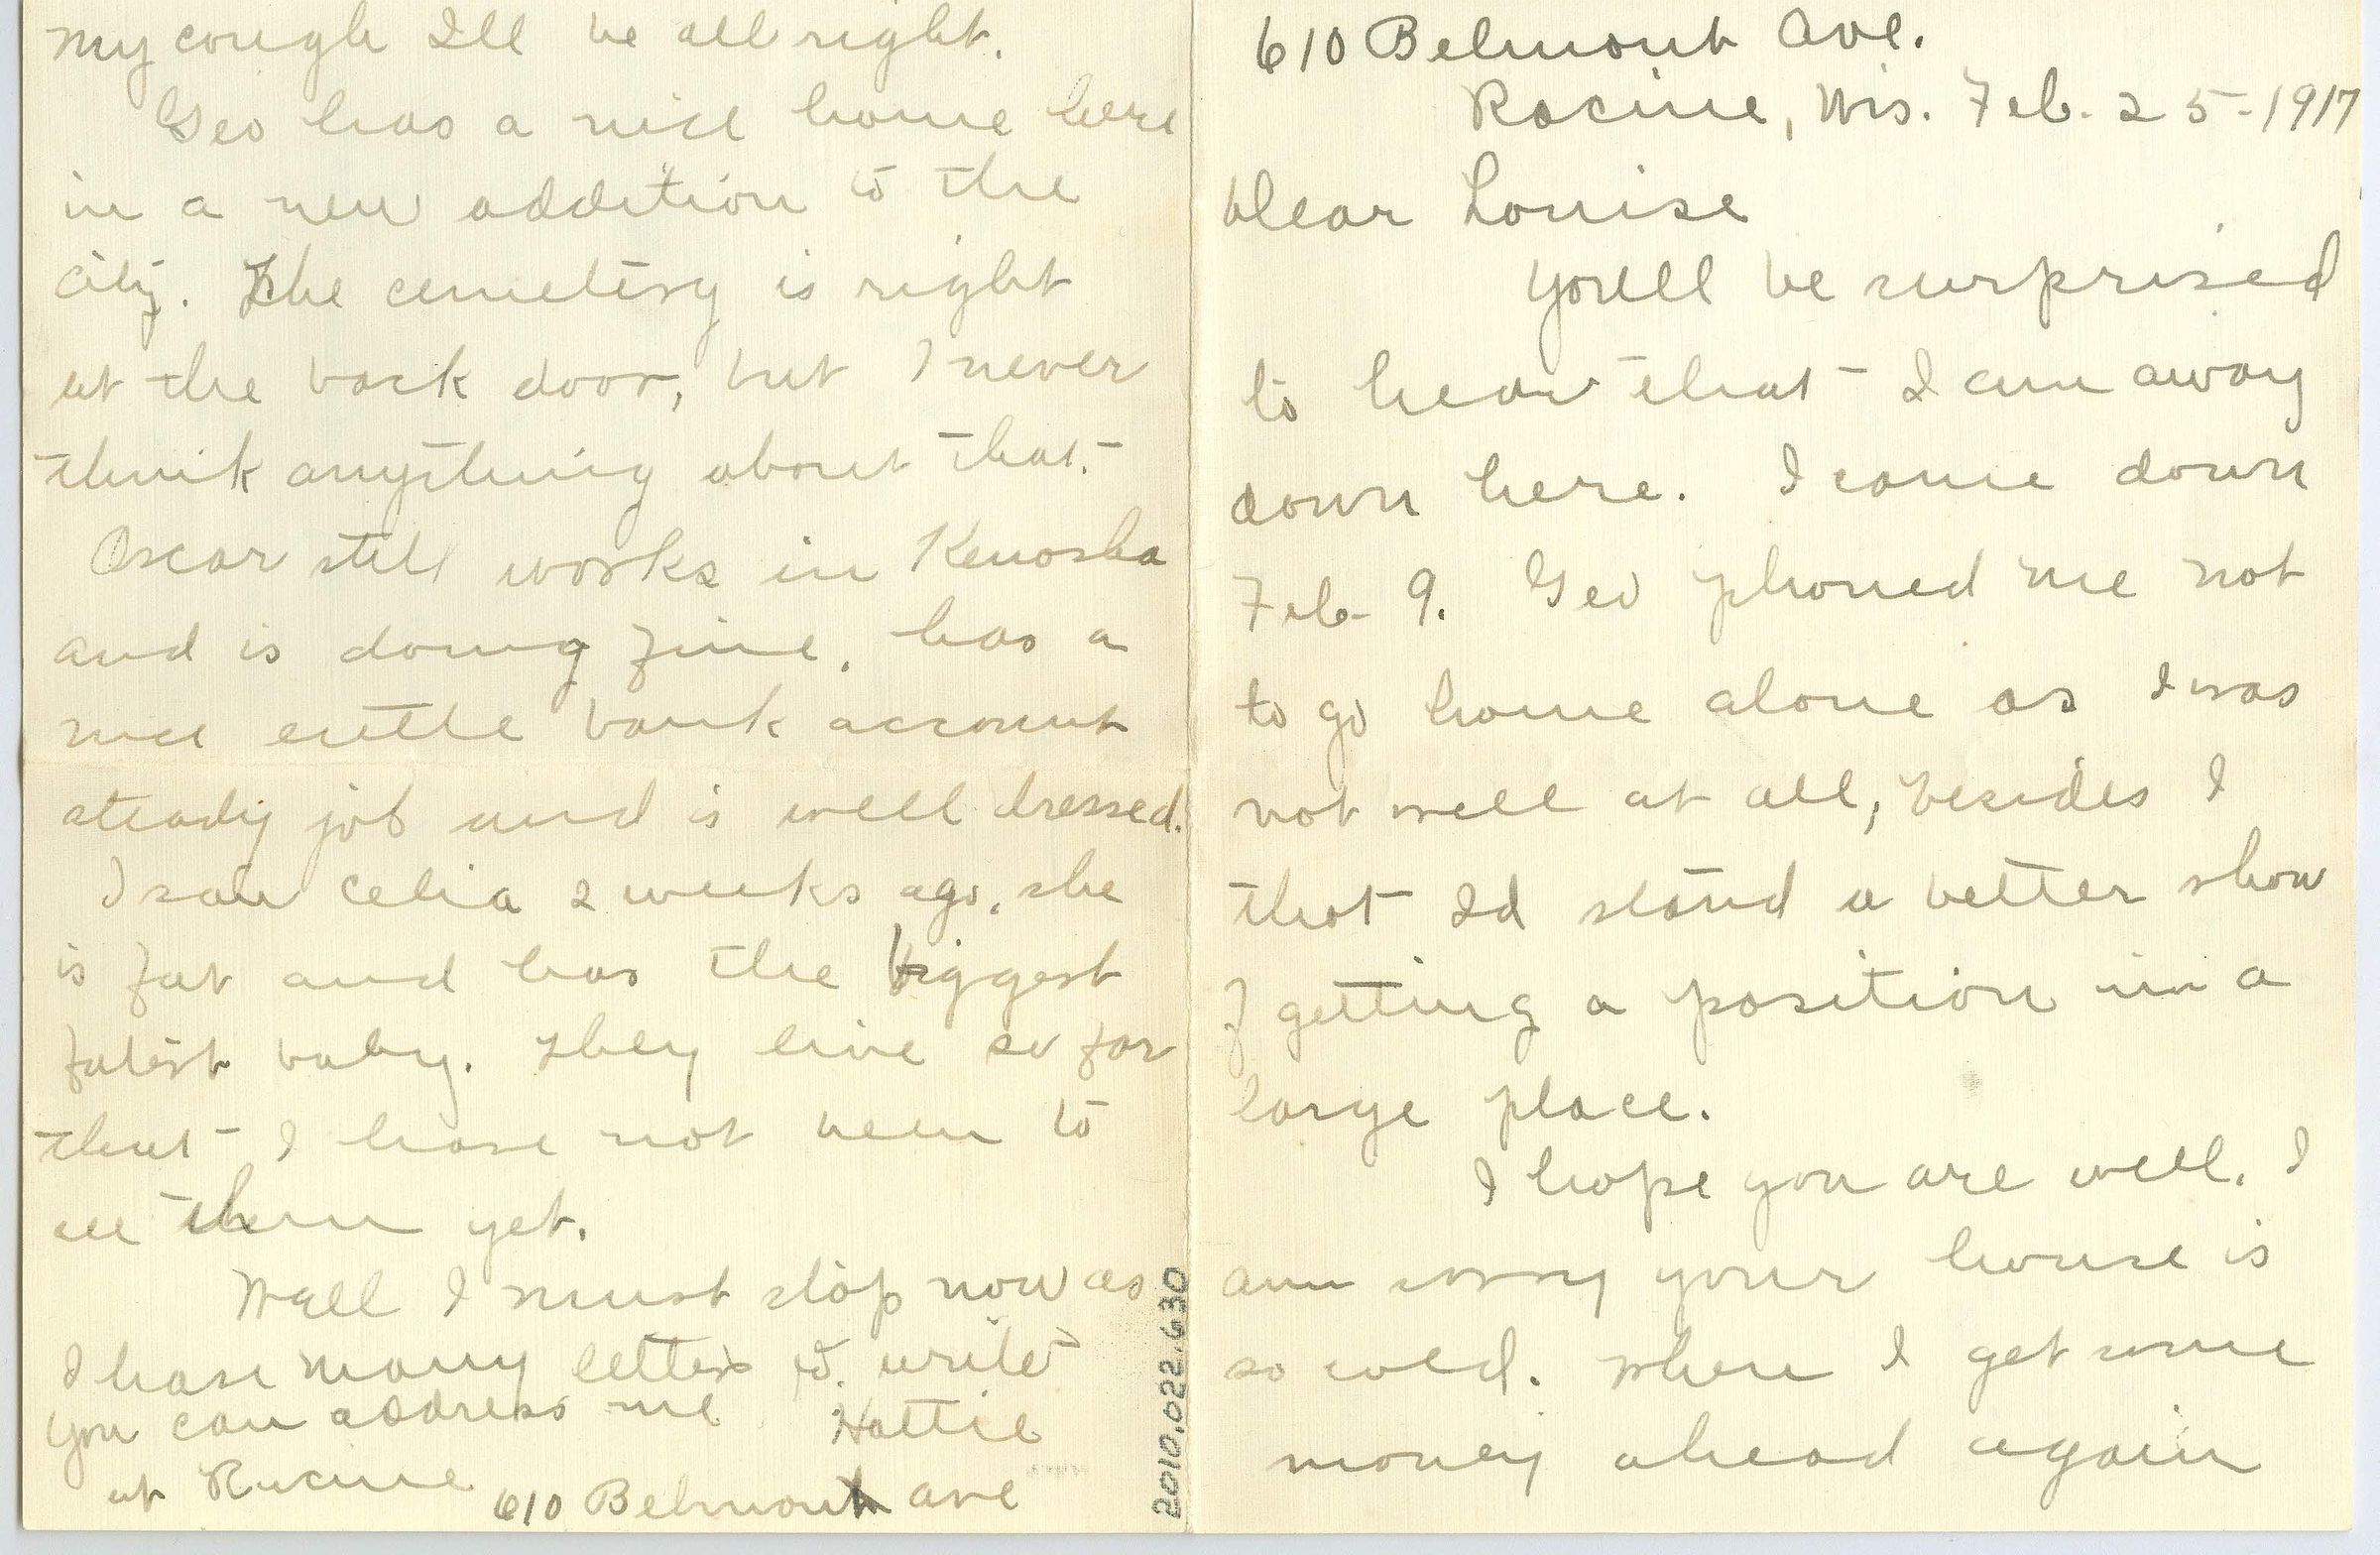 610 Belmont Ave.
Racine, Wis. Feb. 25-1917
Dear Louise
You'll be surprised
to hear that I am away
down here. I came down
Feb. 9. Geo phoned me not
to go home alone as I was
not well at all, besides I
that I'd stand a better show
of getting a position in a
large place.
I hope you are well. I
am sorry your house is
so cold. When I get some
money ahead again
my cough I'll be all right.
Geo has a nice home here
in a new addition to the
city. The cemetery is right
at the back door, but I never
think anything about that.
Oscar still works in Kenosha
and is doing fine. has a
nice little bank account
steady job and is well dressed.
I saw Celia 2 weeks ago, she
is fat and has the biggest
fatest baby. They live so far
that I have not been to
see them yet.
Well I must stop now as
I have many letters to write
you can address me Hattie
at Racine 610 Belmont ave
2010.022.630